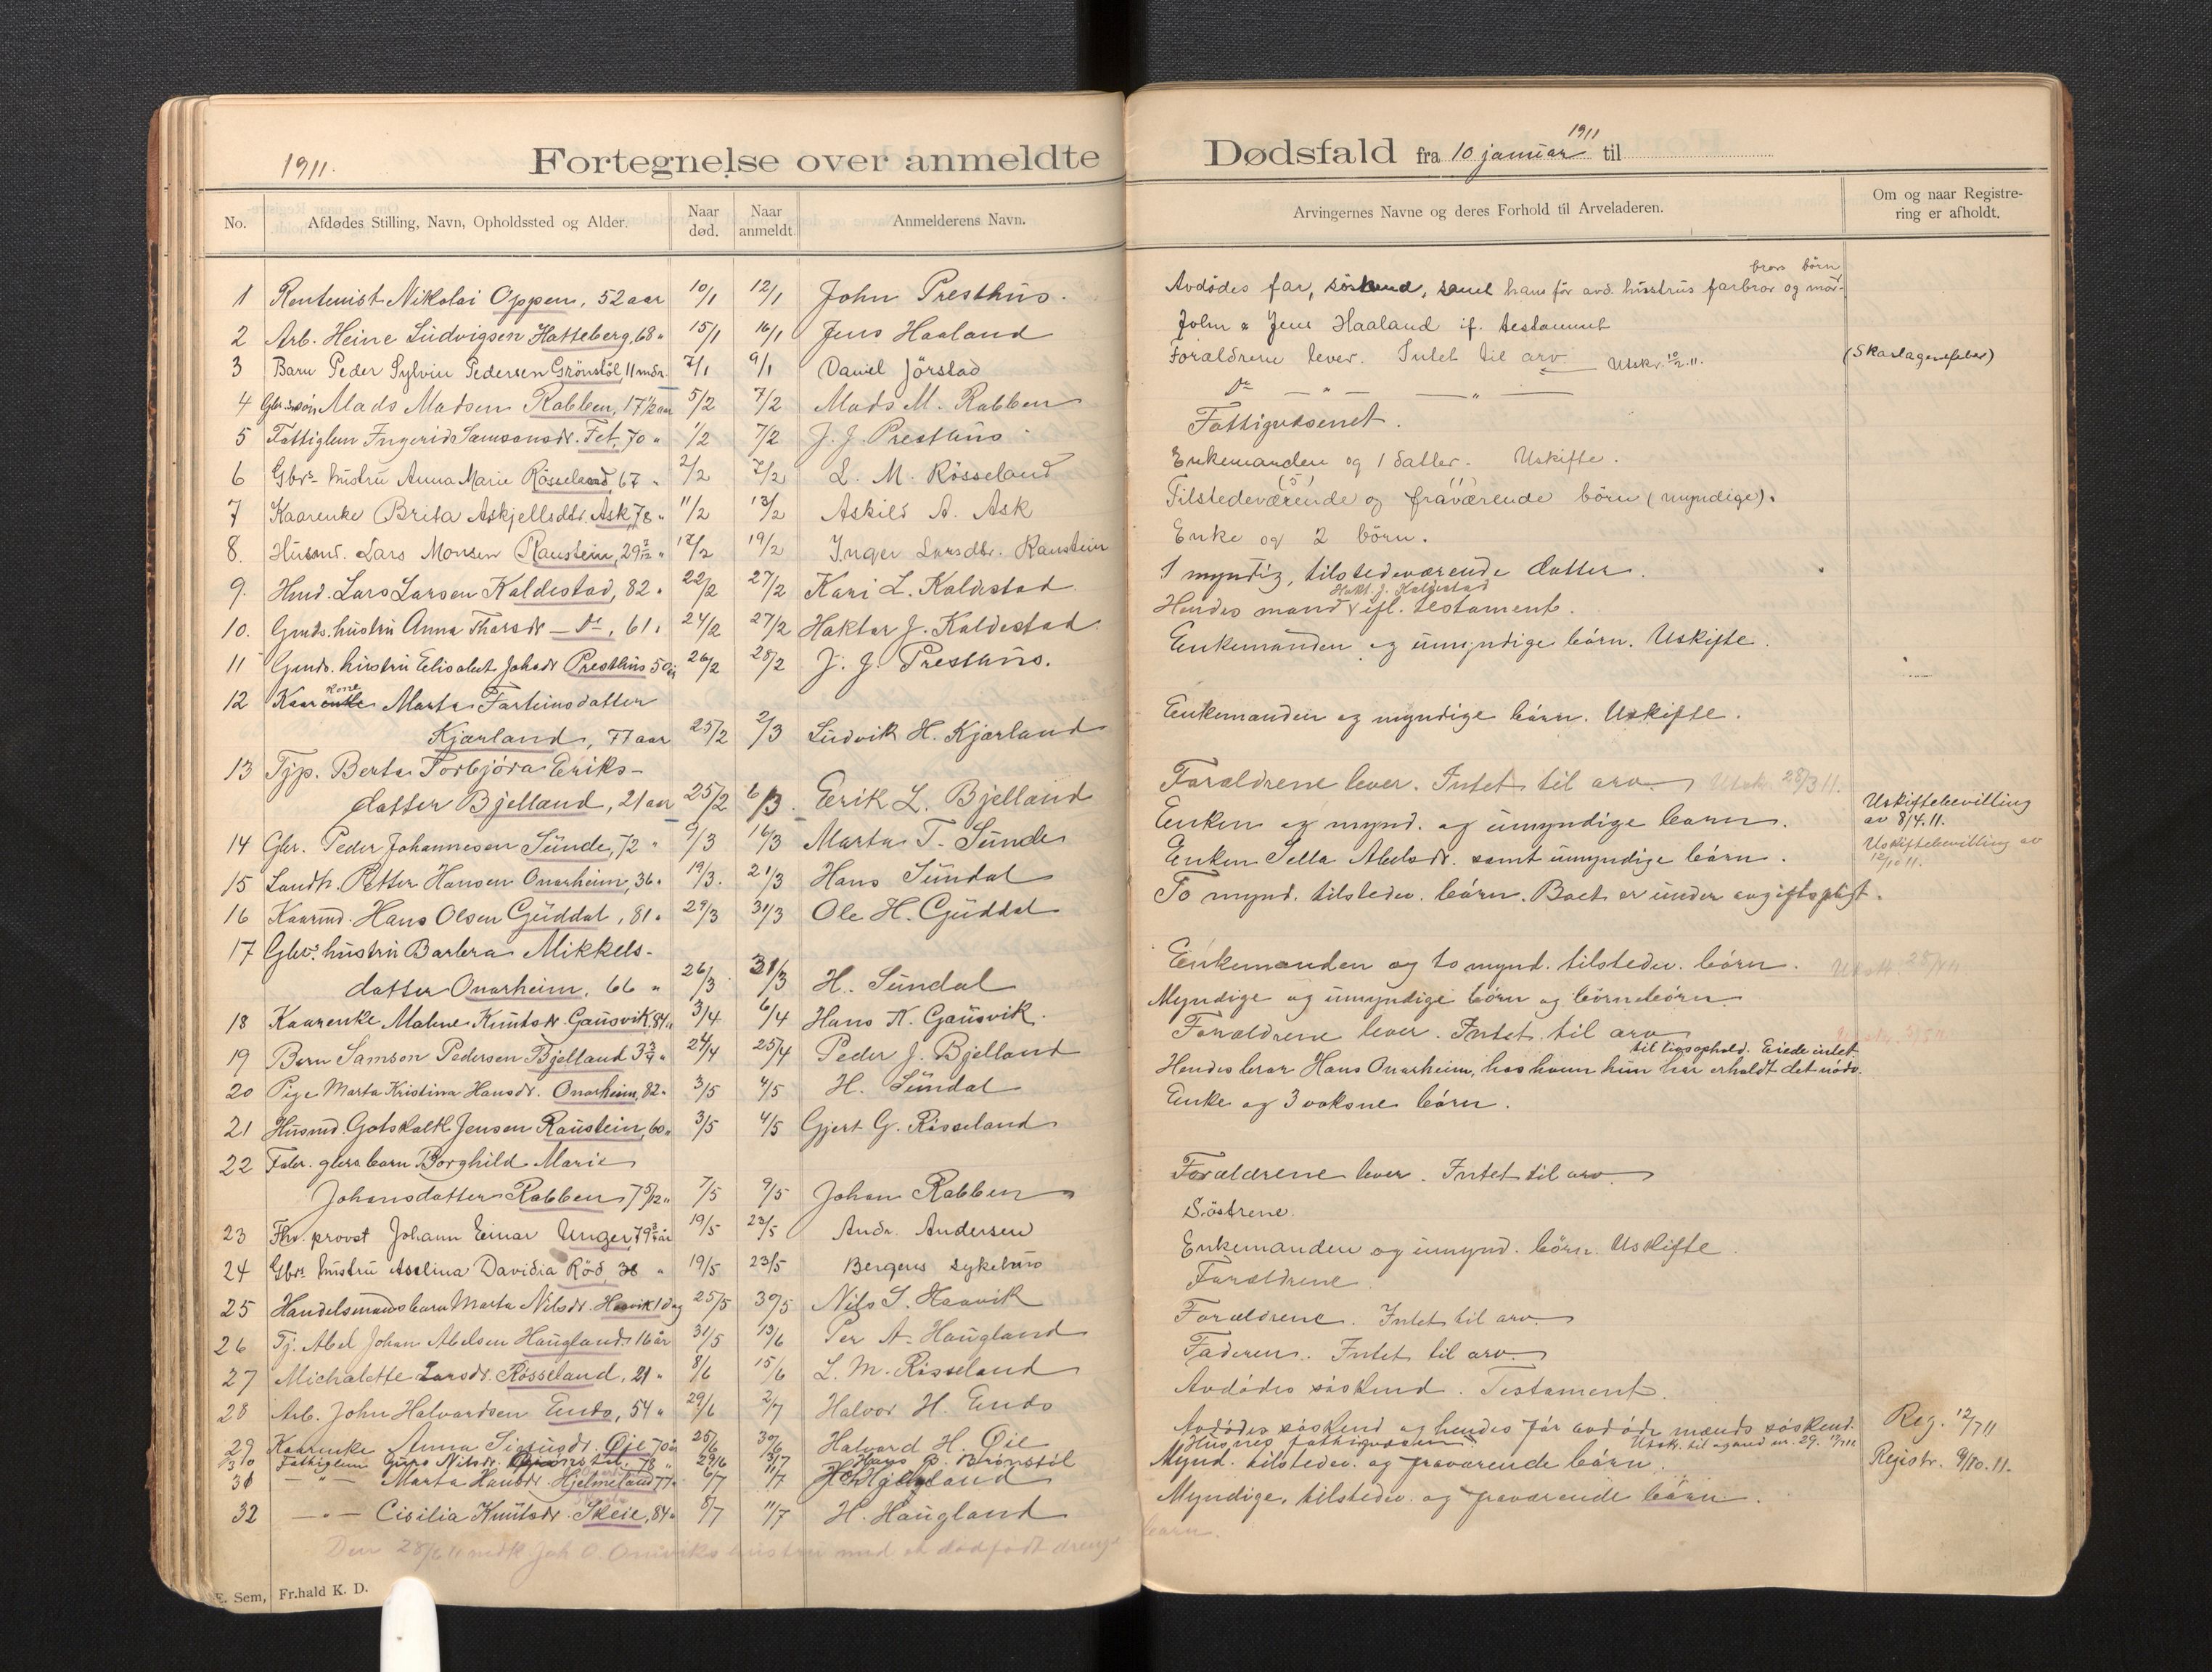 1911.
Fortegnelse over anmeldte
No.
Afdødes Stilling, Navn, Opholdssted og Alder.
Naar død.
Naar anmeldt.
Anmelderens Navn.
1 Rentenist Nikolai Oppen, 52 aar 10/1 12/1 John Presthus.
2 Arb. Heine Ludvigsen Hatteberg, 68 " 15/1 16/1 Jens Haaland
3 Barn Peder Sylvin Pedersen Grönstöl, 11 mdr. 7/1 9/1 Daniel Jörstad
4 Gbr. sön Mads Madsen Rabben, 17 1/2 aar 5/2 7/2 Mads M. Rabben
5 Fattiglem Ingerid Samsonsdr. Fet, 70 " 1/2 7/2 J. J. Presthus
6 Gbrs hustru Anna Marie Rösseland, 67 " 2/2 7/2 L. M. Rösseland
7 Kaarenke Brita Askjellsdtr. Ask, 78 " 11/2 13/2 Askild A. Ask
8. Husmd. Lars Monsen Raustein, 29 7/12 " 17/2 19/2 Inger Larsdtr. Raustein
9. Hmd. Lars Larsen Kaldestad, 82 " 22/2 27/2 Kari L. Kaldestad
10. Gmds. hustru Anna Thorsdr — do, 61 " 24/2 27/2 Haktor J. Kaldestad
11 Gmds. hustru Elisabet Johsdr Presthus 50 år 26/2 28/2 J. J. Presthus.
kone
12 Kaarenke Marta Farteinsdatter
Kjærland, 77 aar 25/2 2/3 Ludvik H. Kjærland
13 Tjp. Berta Torbjöra Eriks-
datter Bjelland, 21 aar 25/2 6/3 Eerik L. Bjelland
14 Gbr. Peder Johannesen Sunde, 72 " 9/3 16/3 Marta T. Sunde
15 Landh. Petter Hansen Onarheim, 36 " 19/3. 21/3 Hans Sundal
16 Kaarmd. Hans Olsen Guddal, 81 " 29/3 31/3 Ole H. Guddal
17 Gbrs. hustru Barbra Mikkels-
datter Onarheim, 66 " 26/3 31/3 H. Sundal
18 Kaarenke Malene Knutsdr Gausvik, 84 " 3/4 6/4 Hans K. Gausvik.
19 Barn Samson Pedersen Bjelland 3 3/4 " 24/4 25/4 Peder J. Bjelland
20 Pige Marta Kristina Hansdr. Onarheim, 82 " 3/5 4/5 H. Sundal
21 Husmd. Gotskalk Jensen Raustein, 60 " 3/5 4/5 Gjert G. Rösseland
22 Fabr. gbrs barn Borghild Marie
Johansdatter Rabben 7 5/12 " 7/5 9/5 Johan Rabben
23 Fhv. provst Johann Einar Unger, 79 3/4 år 19/5 22/5 Andr. Andersen
24 Gbrs hustru Asselina Davidia Röd, 38 " 19/5 23/5 Bergens sykehus
25 Handelsmands barn Marta Nilsdr. Haavik 1 dag 25/5 30/5 Nils S. Haavik
26 Tj. Abel Johan Abelsen Haugland 16 år 31/5 13/6 Per A. Haugland
27 Michalette Larsdr. Rösseland, 21 " 8/6 15/6 L. M. Rösseland
28 Arb. John Halvardsen Ends, 54 " 29/6 2/7 Halvor H. Ends
29 Kaarenke Anna Sigfusdr. Øie 70 år 25/6 30/6 Halvard H. Øie
30 Fattiglem Guro Nilsdr. 78 " 29/6 13/7 Hans P. Brönstöl
31 — " — Marta Hansdr. Hjelmeland 77 " 6/7 11/7
32 — " — Cicilia Knutsdr. Skeie, 84 " 8/7 11/7 H. Haugland
Den 28/6 11 nedk Joh O. Omviks hustru med et dödfödt drenge
barn.
E. Sem, Fr.hald K. D.
Dødsfald fra 10 januar 1911 til
Arvingernes Navne og deres Forhold til Arveladeren.
Om og naar Registrering er afholdt.
brors börn
Avdödes far, söskend, samt hans för avd. hustrus farbror og mor-
John & Jens Haaland if. testament
Forældrene lever. Intet til arv Utskr. 10/2.11. (Skarlagensfeber)
do — " — — " —
Fattigvæsenet.
Enkemanden og 1 datter. Uskifte.
(5)
Tilstedeværende og fraværende börn (myndige).
Enke og 2 börn.
1 myndig, tilstedeværende datter.
Hakt. J. Kaldestad
Hendes mand efl. testament.
Enkemanden og umyndige börn. Uskifte.
Enkemanden og myndige börn. Uskifte.
Forældrene lever. Intet til arv. Utskr. 28/3 11.
Enken og mynd. og umyndige börn. Uskiftebevilling av 8/4.11.
Enken Sella Abelsdr. samt umyndige börn. Uskiftebevilling av 12/10 11.
To mynd. tilstedev. börn. Boet er under avgiftspligt.
Enkemanden og to mynd. tilstedev. börn.
Myndige og umyndige börn og börnebörn
Forældrene lever. Intet til arv
til livsophold. Eiede intet
Hendes bror Hans Onarheim, hos hvem hun har erholdt det nödv.
Enke og 3 voksne börn.
Forældrene lever. Intet til arv.
Söstrene.
Enkemanden og umynd. börn. Uskifte.
Forældrene
Forældrene. Intet til arv.
Faderen. Intet til arv.
Avdödes söskend. Testament.
Avdödes söskend og hendes för avdöde mands söskend. Reg. 12/7 11
Husnes fattigvæsen Utskr. til nr. 29. 17/7 11
Mynd. tilstedev. og fraværende börn. Registr. 9/10.11.
Myndige, tilstedev. og fraværende börn.